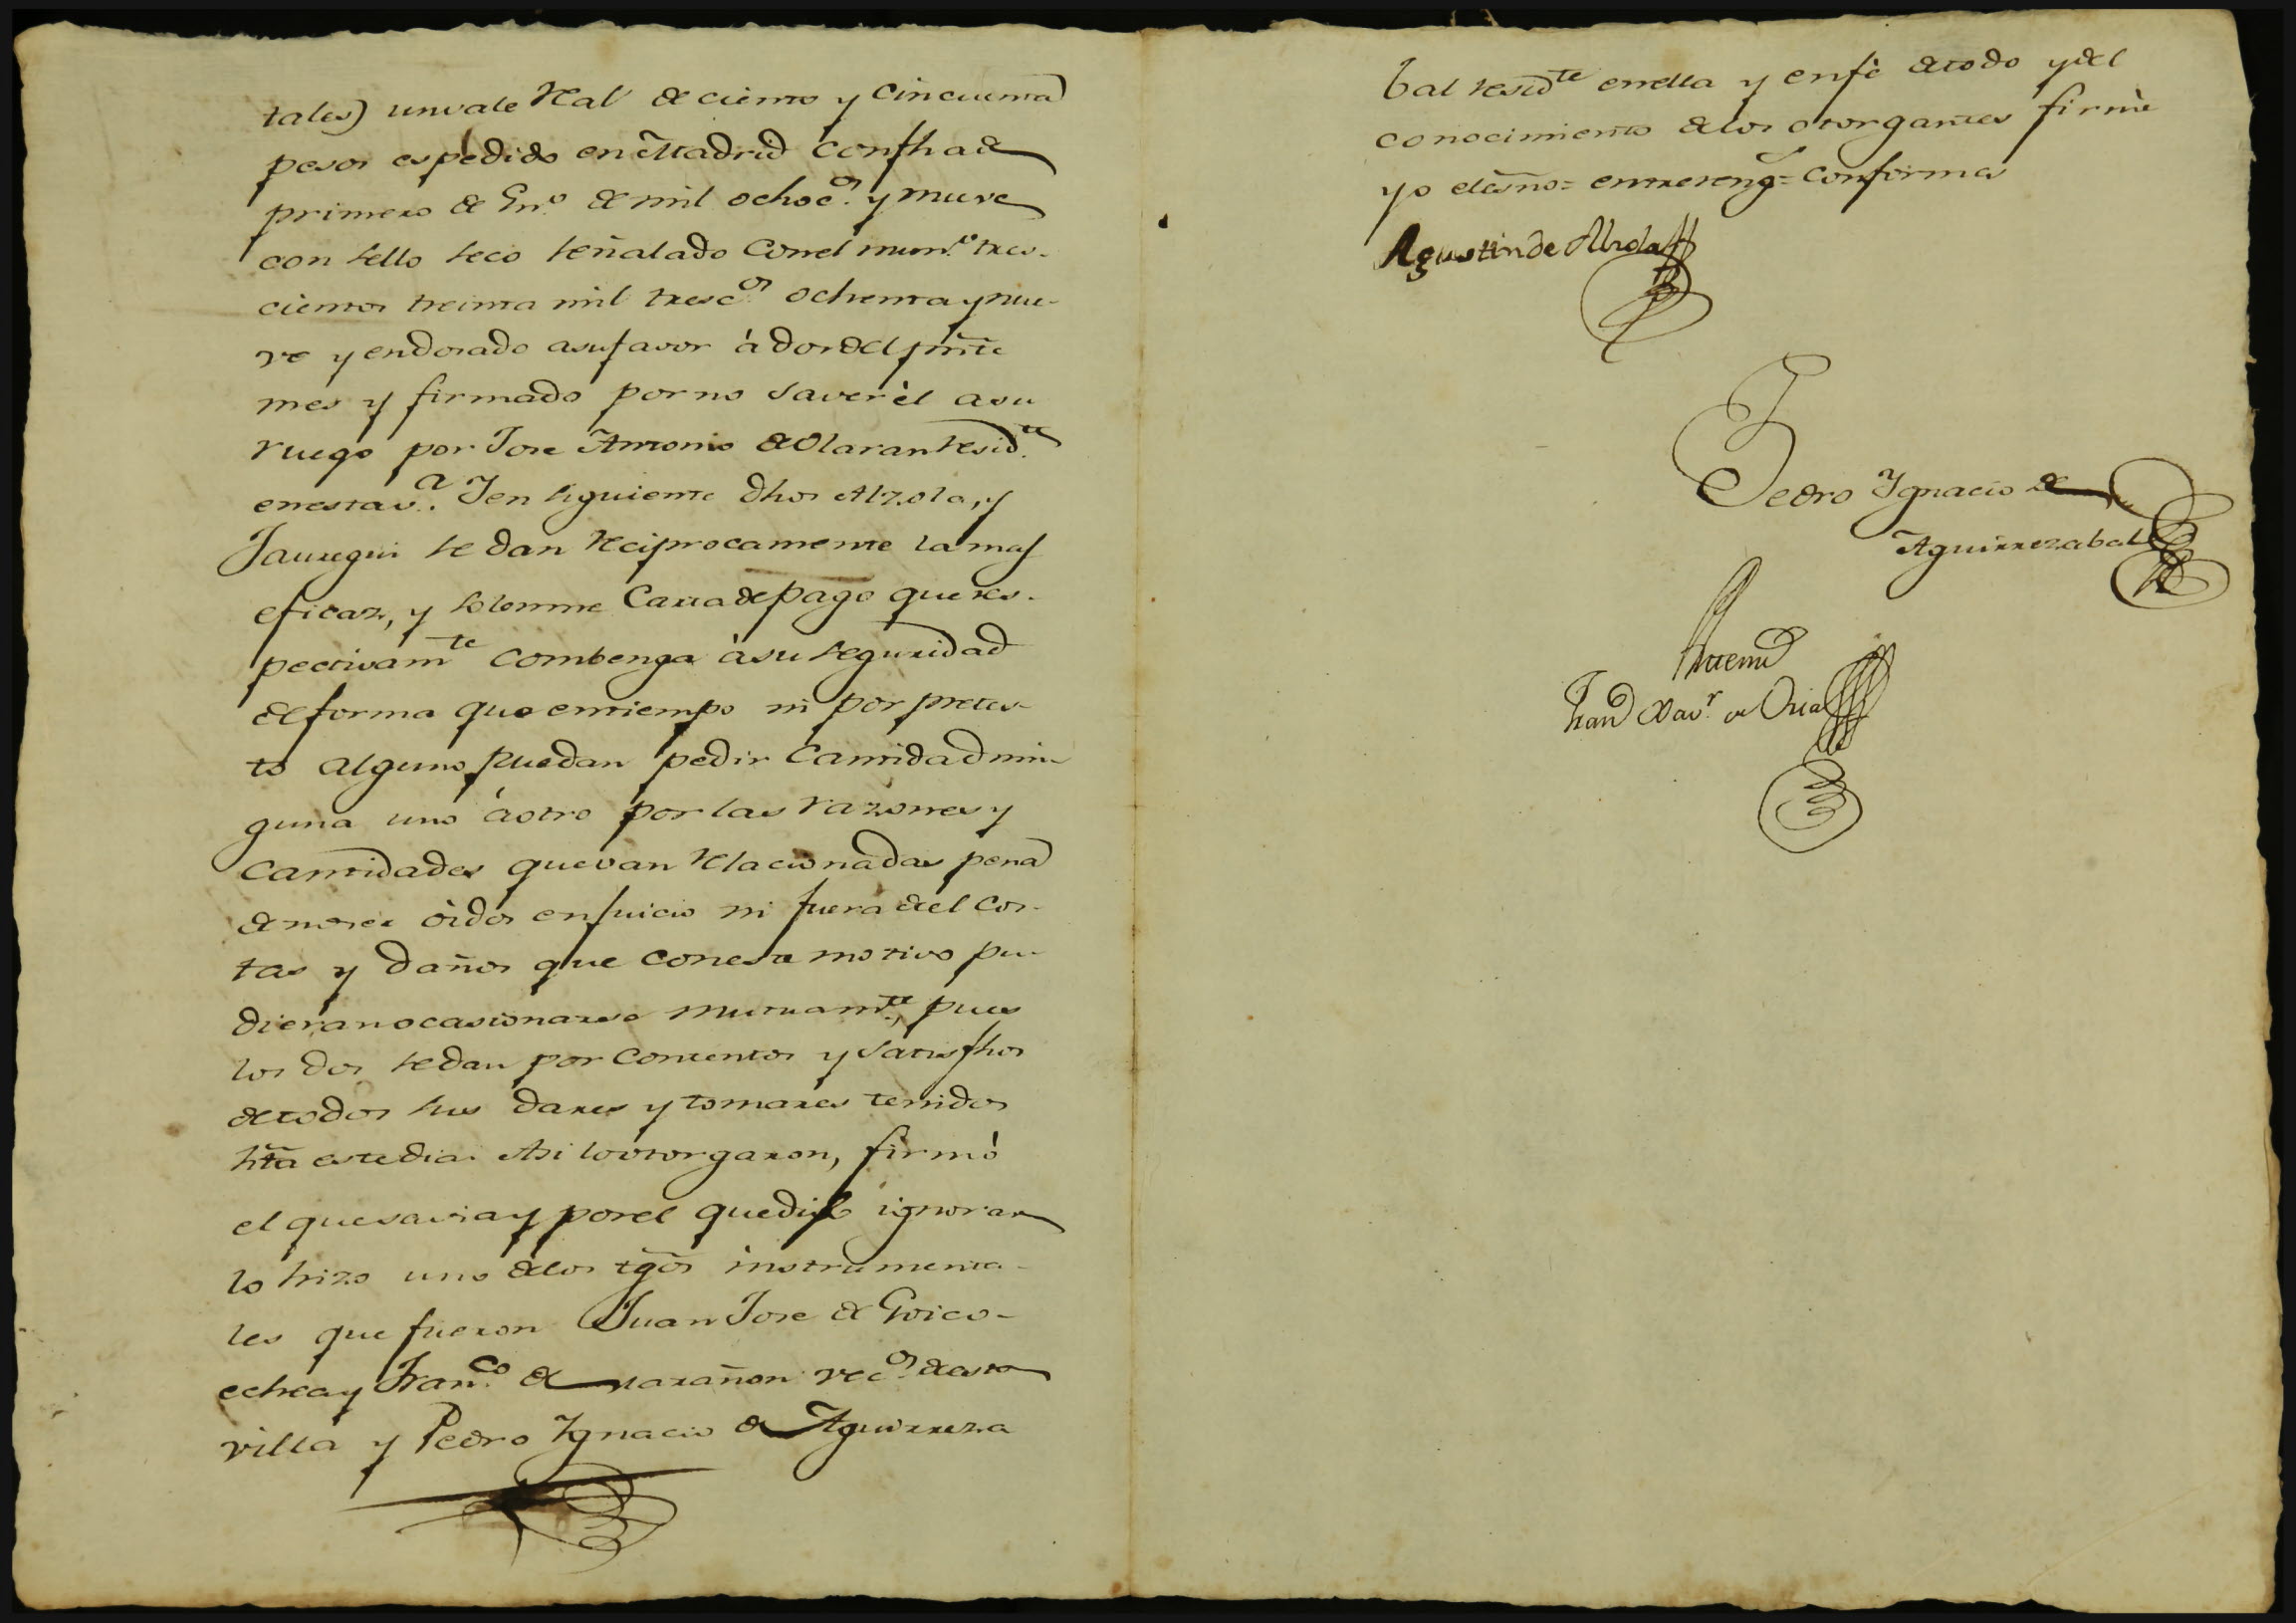 tales) un vale Real de ciento y cincuenta
pesos espedido en Madrid con fha de
primero de En.º de mil ochoc.os y nueve
con sello seco señalado con el num.º tres-
cientos treinta mil tresc.os ochenta y nue-
ve y endosado a su favor à dos del pñte
mes y firmado por no saver èl a su
ruego por Jose Antonio de Olaran resid.te
en esta v.a Y en siguiente dhos Alzola, y
Jauregui se dan reciprocamente la mas
eficaz, y solemne Carta de pago que res-
pectivam.te combenga à su seguridad
de forma que en tiempo ni por pretes-
to alguno puedan pedir cantidad nin-
guna uno à otro por las razones y
cantidades que van relacionadas pena
de no ser òidos en juicio ni fuera de el cos-
tas y daños que con este motivo pu-
dieran ocasionarse mutuam.te, pues
los dos se dan por contentos y satisfhos
de todos sus dares y tomares tenidos
hta este dia. Asi lo otorgaron, firmò
el que savia y por el que dijo ignorar
lo hizo uno de los tgos instrumenta-
les que fueron Juan Jose de Goico-
echea y Fran.co de Marañon vec.os de esta
villa y Pedro Ignacio de Aguirreza
bal resid.te en ella y en fè de todo y del
conocimiento de los otorgantes firmè
yo el esño = entrereng.s = conforma
Agustin de Alzola
Pedro Ignacio de
Aguirrezabal
Antemi
Fran.co Xav.r de Oria